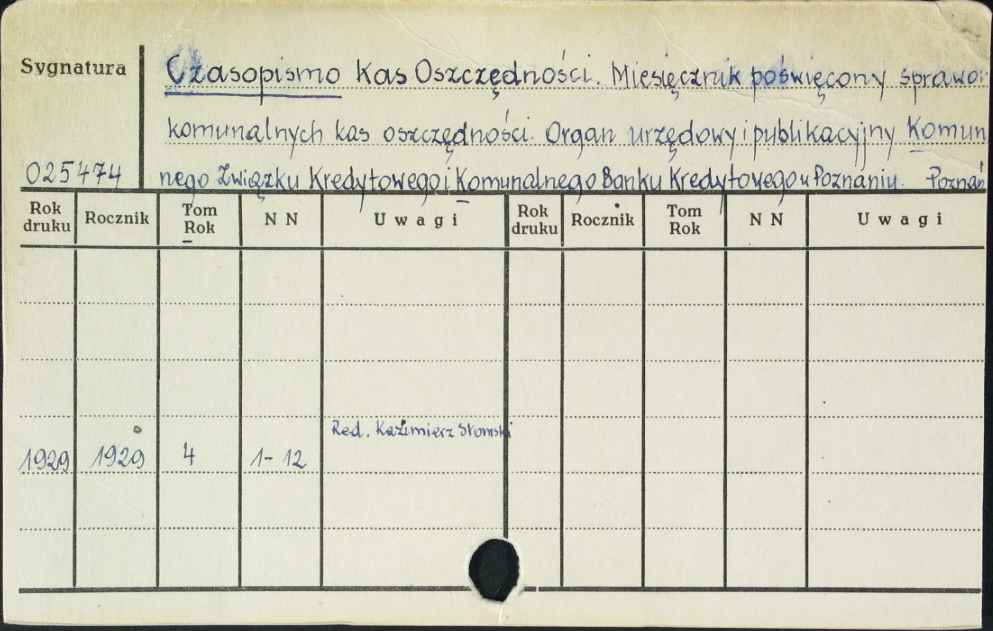 Sygnatura
Czasopismo Kas Oszczędności. Miesięcznik poświęcony sprawo
komunalnych kas oszczędności. Organ urzędowy i publikacyjny Komun
025474
nego Związku Kredytowego i Komunalnego Banku Kredytowego w Poznaniu. Poznań
Rok druku Rocznik Tom Rok NN Uwagi Rok druku Rocznik Tom Rok NN Uwagi
Red. Kazimierz Słomski
1929 1929 4 1-12